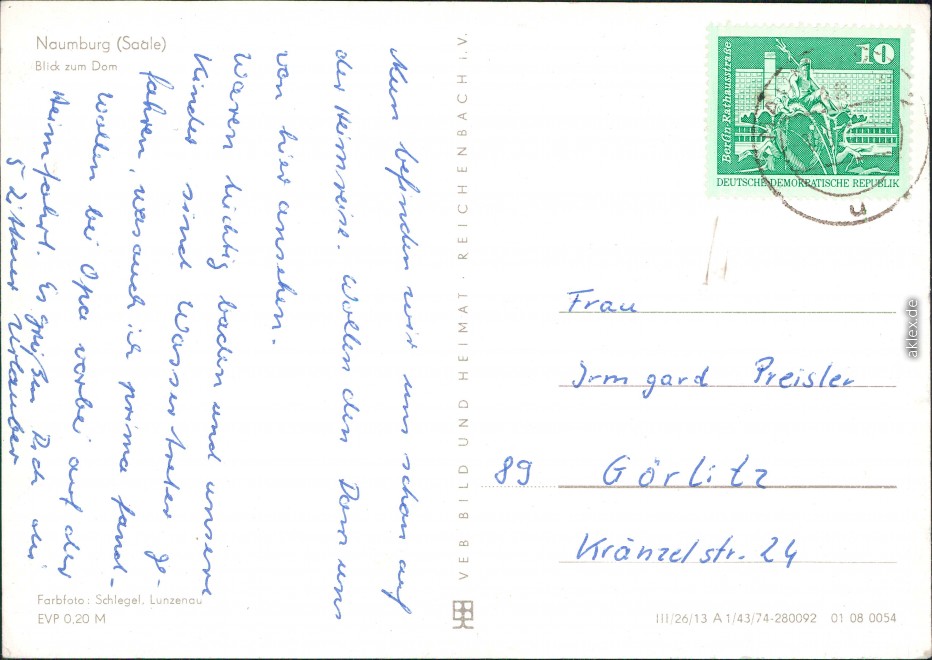 Naumburg (Saale)
Blick zum Dom
Nun befinden wir uns schon auf
der Heimreise. Wollen den Dom uns
von hier ansehen.
Waren tüchtig baden und unsere
Kinder sind Wassertreter ge-
fahren, was auch ich prima fand.
Wollen bei Opa vorbei auf der
Heimfahrt. Es grüßen Dich die
5 Zittauer Urlauber
Farbfoto: Schlegel, Lunzenau
EVP 0,20 M
VEB BILD UND HEIMAT · REICHENBACH i. V.
10
Berlin · Rathausstraße
DEUTSCHE DEMOKRATISCHE REPUBLIK
Frau
Irmgard Preisler
89 Görlitz
Kränzelstr. 24
III/26/13 A 1/43/74-280092 01 08 0054
aklex.de